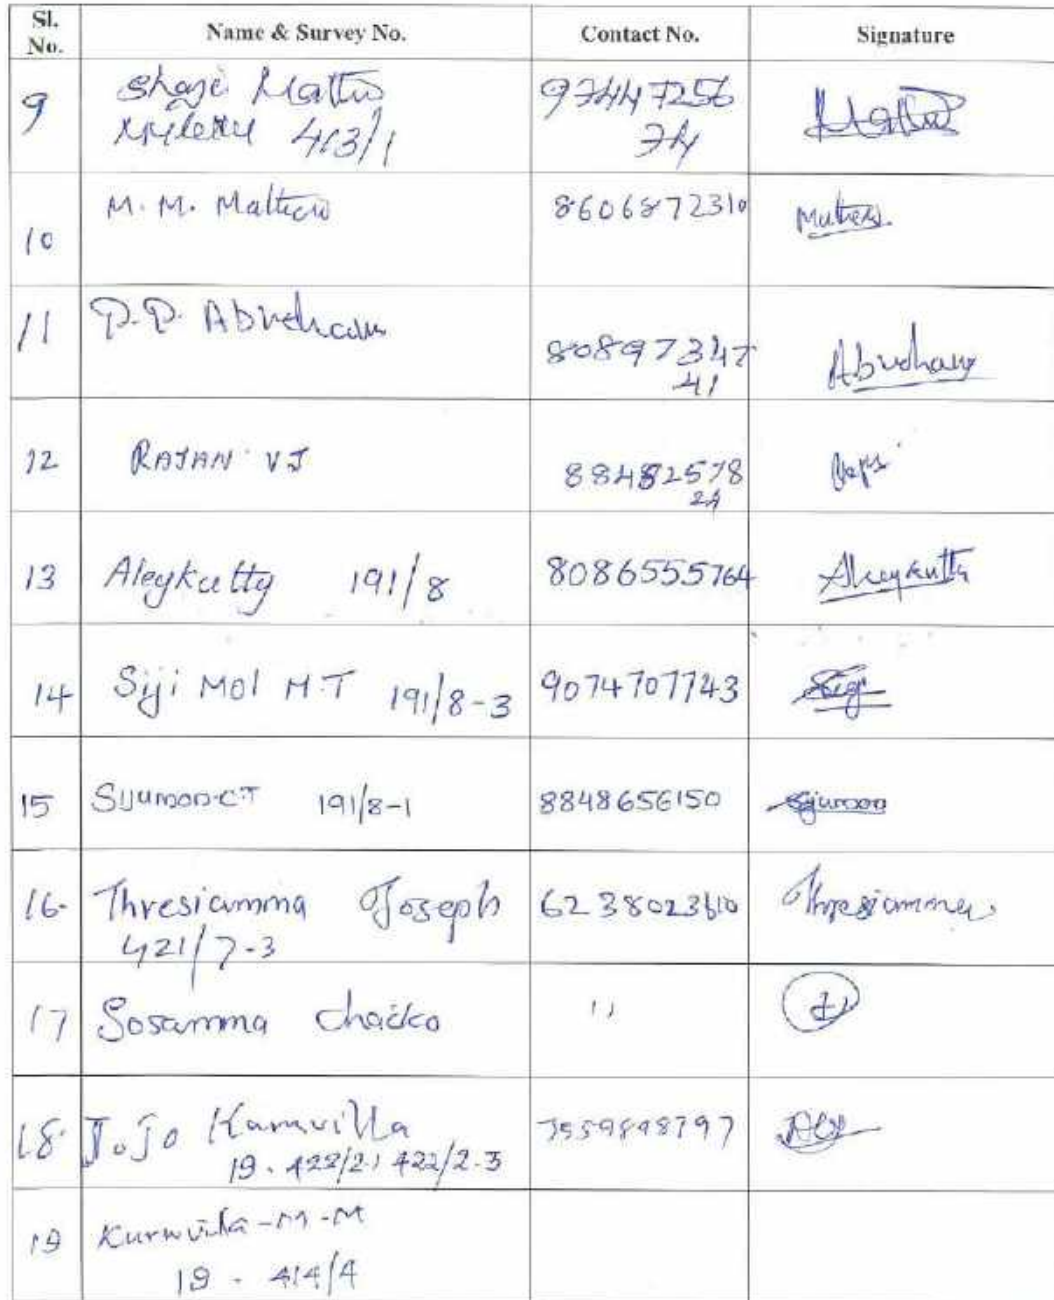 Sl. No. Name & Survey No. Contact No. Signature
9 Shaji Mathew 9744725674
413/1
10 M. M. Mathew 8606872310 Mathew
11 P.P. Abraham 8089734741 Abraham
12 RAJAN VJ 8848257824
13 Aleykutty 191/8 8086555764 Aleykutty
14 Siji Mol M.T 191/8-3 9074707743 Siji
15 Sijumon CT 191/8-1 8848656150 Sijumon
16. Thresiamma Joseph 6238023610 Thresiamma
421/7-3
17 Sosamma Chacko 11
18. Jojo Kuruvilla 7559898797
19. 422/2.1 422/2.3
19 Kuruvila - M - M
19 - 414/4